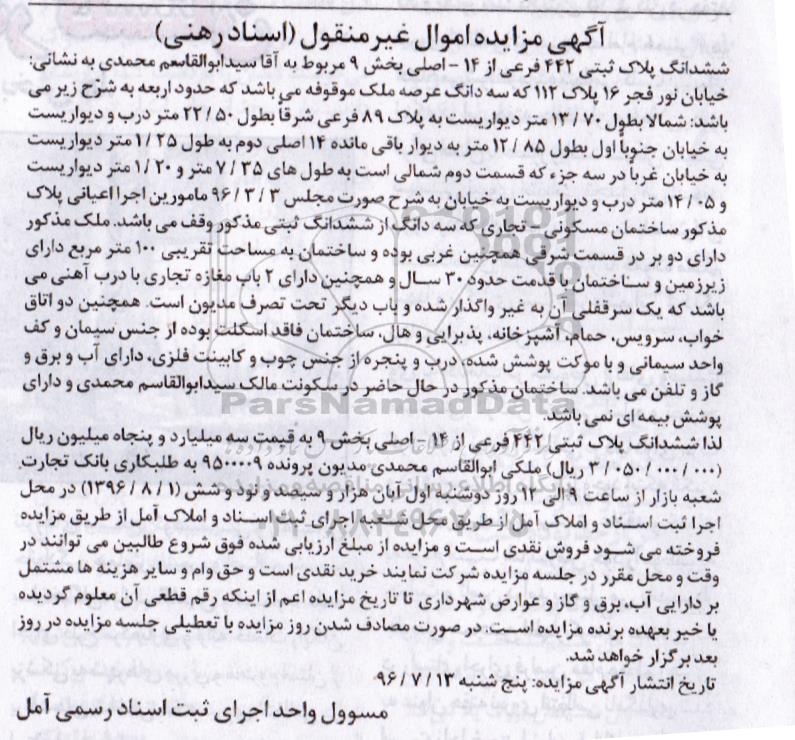 آگهی مزایده اموال غیر منقول (اسناد رهنی)
ششدانگ پلاک ثبتی ۴۴۲ فرعی از ۱۴ - اصلی بخش ۹ مربوط به آقا سیدابوالقاسم محمدی به نشانی:
خیابان نور فجر ۱۶ پلاک ۱۱۲ که سه دانگ عرصه ملک موقوفه می باشد که حدود اربعه به شرح زیر می
باشد: شمالا بطول ۷۰ / ۱۳ متر دیواریست به پلاک ۸۹ فرعی شرقاً بطول ۵۰ / ۲۲ متر درب و دیواریست
به خیابان جنوباً اول بطول ۸۵ / ۱۲ متر به دیوار باقی مانده ۱۴ اصلی دوم به طول ۲۵ / ۱ متر دیواریست
به خیابان غرباً در سه جزء که قسمت دوم شمالی است به طول های ۳۵ / ۷ متر و ۲۰ / ۱ متر دیواریست
و ۰۵ / ۱۴ متر درب و دیواریست به خیابان به شرح صورت مجلس ۳ / ۳ / ۹۶ مامورین اجرا اعیانی پلاک
مذکور ساختمان مسکونی - تجاری که سه دانگ از ششدانگ ثبتی مذکور وقف می باشد. ملک مذکور
دارای دو بر در قسمت شرقی همچنین غربی بوده و ساختمان به مساحت تقریبی ۱۰۰ متر مربع دارای
زیرزمین و ساختمان با قدمت حدود ۳۰ سال و همچنین دارای ۲ باب مغازه تجاری با درب آهنی می
باشد که یک سرقفلی آن به غیر واگذار شده و باب دیگر تحت تصرف مدیون است. همچنین دو اتاق
خواب، سرویس، حمام، آشپزخانه، پذیرایی و هال، ساختمان فاقد اسکلت بوده از جنس سیمان و کف
واحد سیمانی و با موکت پوشش شده، درب و پنجره از جنس چوب و کابینت فلزی، دارای آب و برق و
گاز و تلفن می باشد. ساختمان مذکور در حال حاضر در سکونت مالک سیدابوالقاسم محمدی و دارای
ParsNamadData
پوشش بیمه ای نمی باشد.
لذا ششدانگ پلاک ثبتی ۴۴۲ فرعی از ۱۴ - اصلی بخش ۹ به قیمت سه میلیارد و پنجاه میلیون ریال
(۰۰۰ / ۰۰۰ / ۰۵۰ / ۳ ریال) ملکی ابوالقاسم محمدی مدیون پرونده ۹۵۰۰۰۰۹ به طلبکاری بانک تجارت
شعبه بازار از ساعت ۹ الی ۱۲ روز دوشنبه اول آبان هزار و سیصد و نود و شش (۱ / ۸ / ۱۳۹۶) در محل
اجرا ثبت اسناد و املاک آمل از طریق محل شعبه اجرای ثبت اسناد و املاک آمل از طریق مزایده
فروخته می شود فروش نقدی است و مزایده از مبلغ ارزیابی شده فوق شروع طالبین می توانند در
وقت و محل مقرر در جلسه مزایده شرکت نمایند خرید نقدی است و حق وام و سایر هزینه ها مشتمل
بر دارایی آب، برق و گاز و عوارض شهرداری تا تاریخ مزایده اعم از اینکه رقم قطعی آن معلوم گردیده
یا خیر بعهده برنده مزایده است. در صورت مصادف شدن روز مزایده با تعطیلی جلسه مزایده در روز
بعد برگزار خواهد شد.
تاریخ انتشار آگهی مزایده: پنج شنبه ۱۳ / ۷ / ۹۶
مسوول واحد اجرای ثبت اسناد رسمی آمل